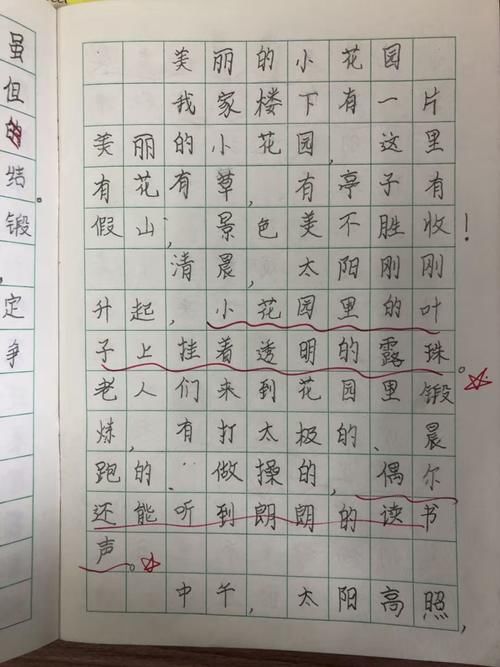 美丽的小花园
我家楼下有一片
美丽的小花园,这里
有花有草,有亭子有
假山,景色美不胜收!
清晨,太阳刚刚
升起,小花园里的叶
子上挂着透明的露珠。
老人们来到花园里锻
炼,有打太极的、晨
跑的、做操的,偶尔
还能听到朗朗的读书
声。
中午,太阳高照,
虽
但
的
结。
锻
,
定
争